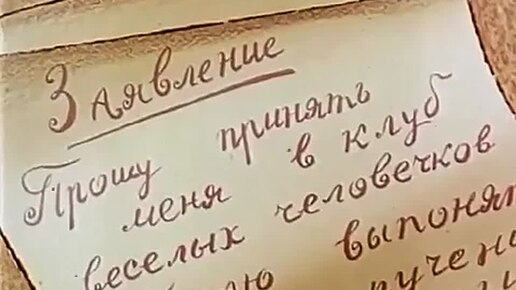 Заявление
Прошу принять
меня в клуб
веселых человечков
выпонят